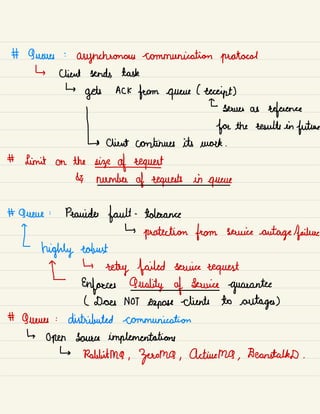 # Queues : asynchronous communication protocol
↳ Client sends task
↳ gets ACK from queue ( receipt )
↳ serves as reference
for the results in future
↳ Client continues its work.
# Limit on the size of request
& number of requests in queue
# Queue : Provides fault-tolerance
↳ protection from service outage/failure
highly robust
↳ retry failed service request
Enforces Quality of Service guarantee
( Does NOT expose clients to outages )
# Queues : distributed communication
↳ Open Source implementations
↳ RabbitMQ, ZeroMQ, ActiveMQ, BeanstalkD.